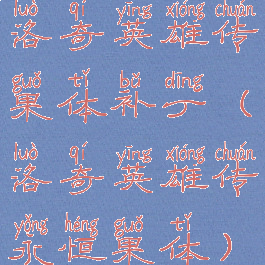 luò qí yīng xióng chuán
洛奇英雄传
guǒ tǐ bǔ dīng
果体补丁（
luò qí yīng xióng chuán
洛奇英雄传
yǒng héng guǒ tǐ
永恒果体）